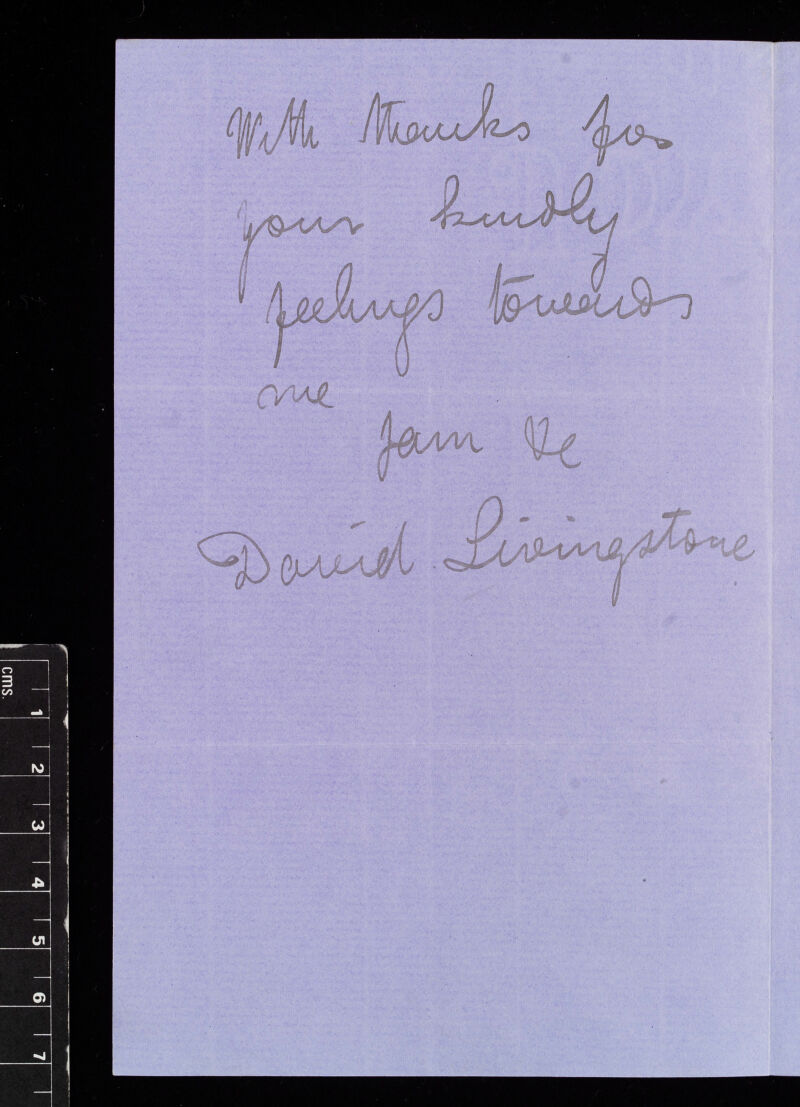 With thanks for
your kindly
feelings towards
me
I am &c
David Livingstone
cms.
1
2
3
4
5
6
7